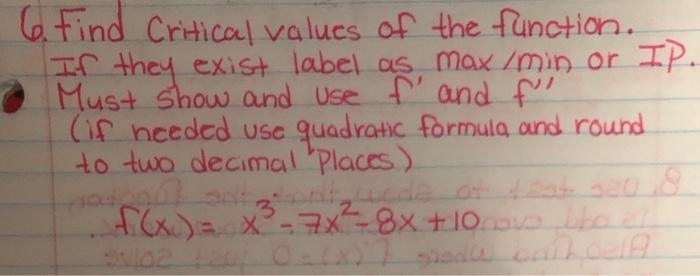 6. Find Critical values of the function.
If they exist label as max/min or IP.
Must show and use f' and f''
(if needed use quadratic formula and round
to two decimal places)
f(x) = x³ - 7x² - 8x + 10